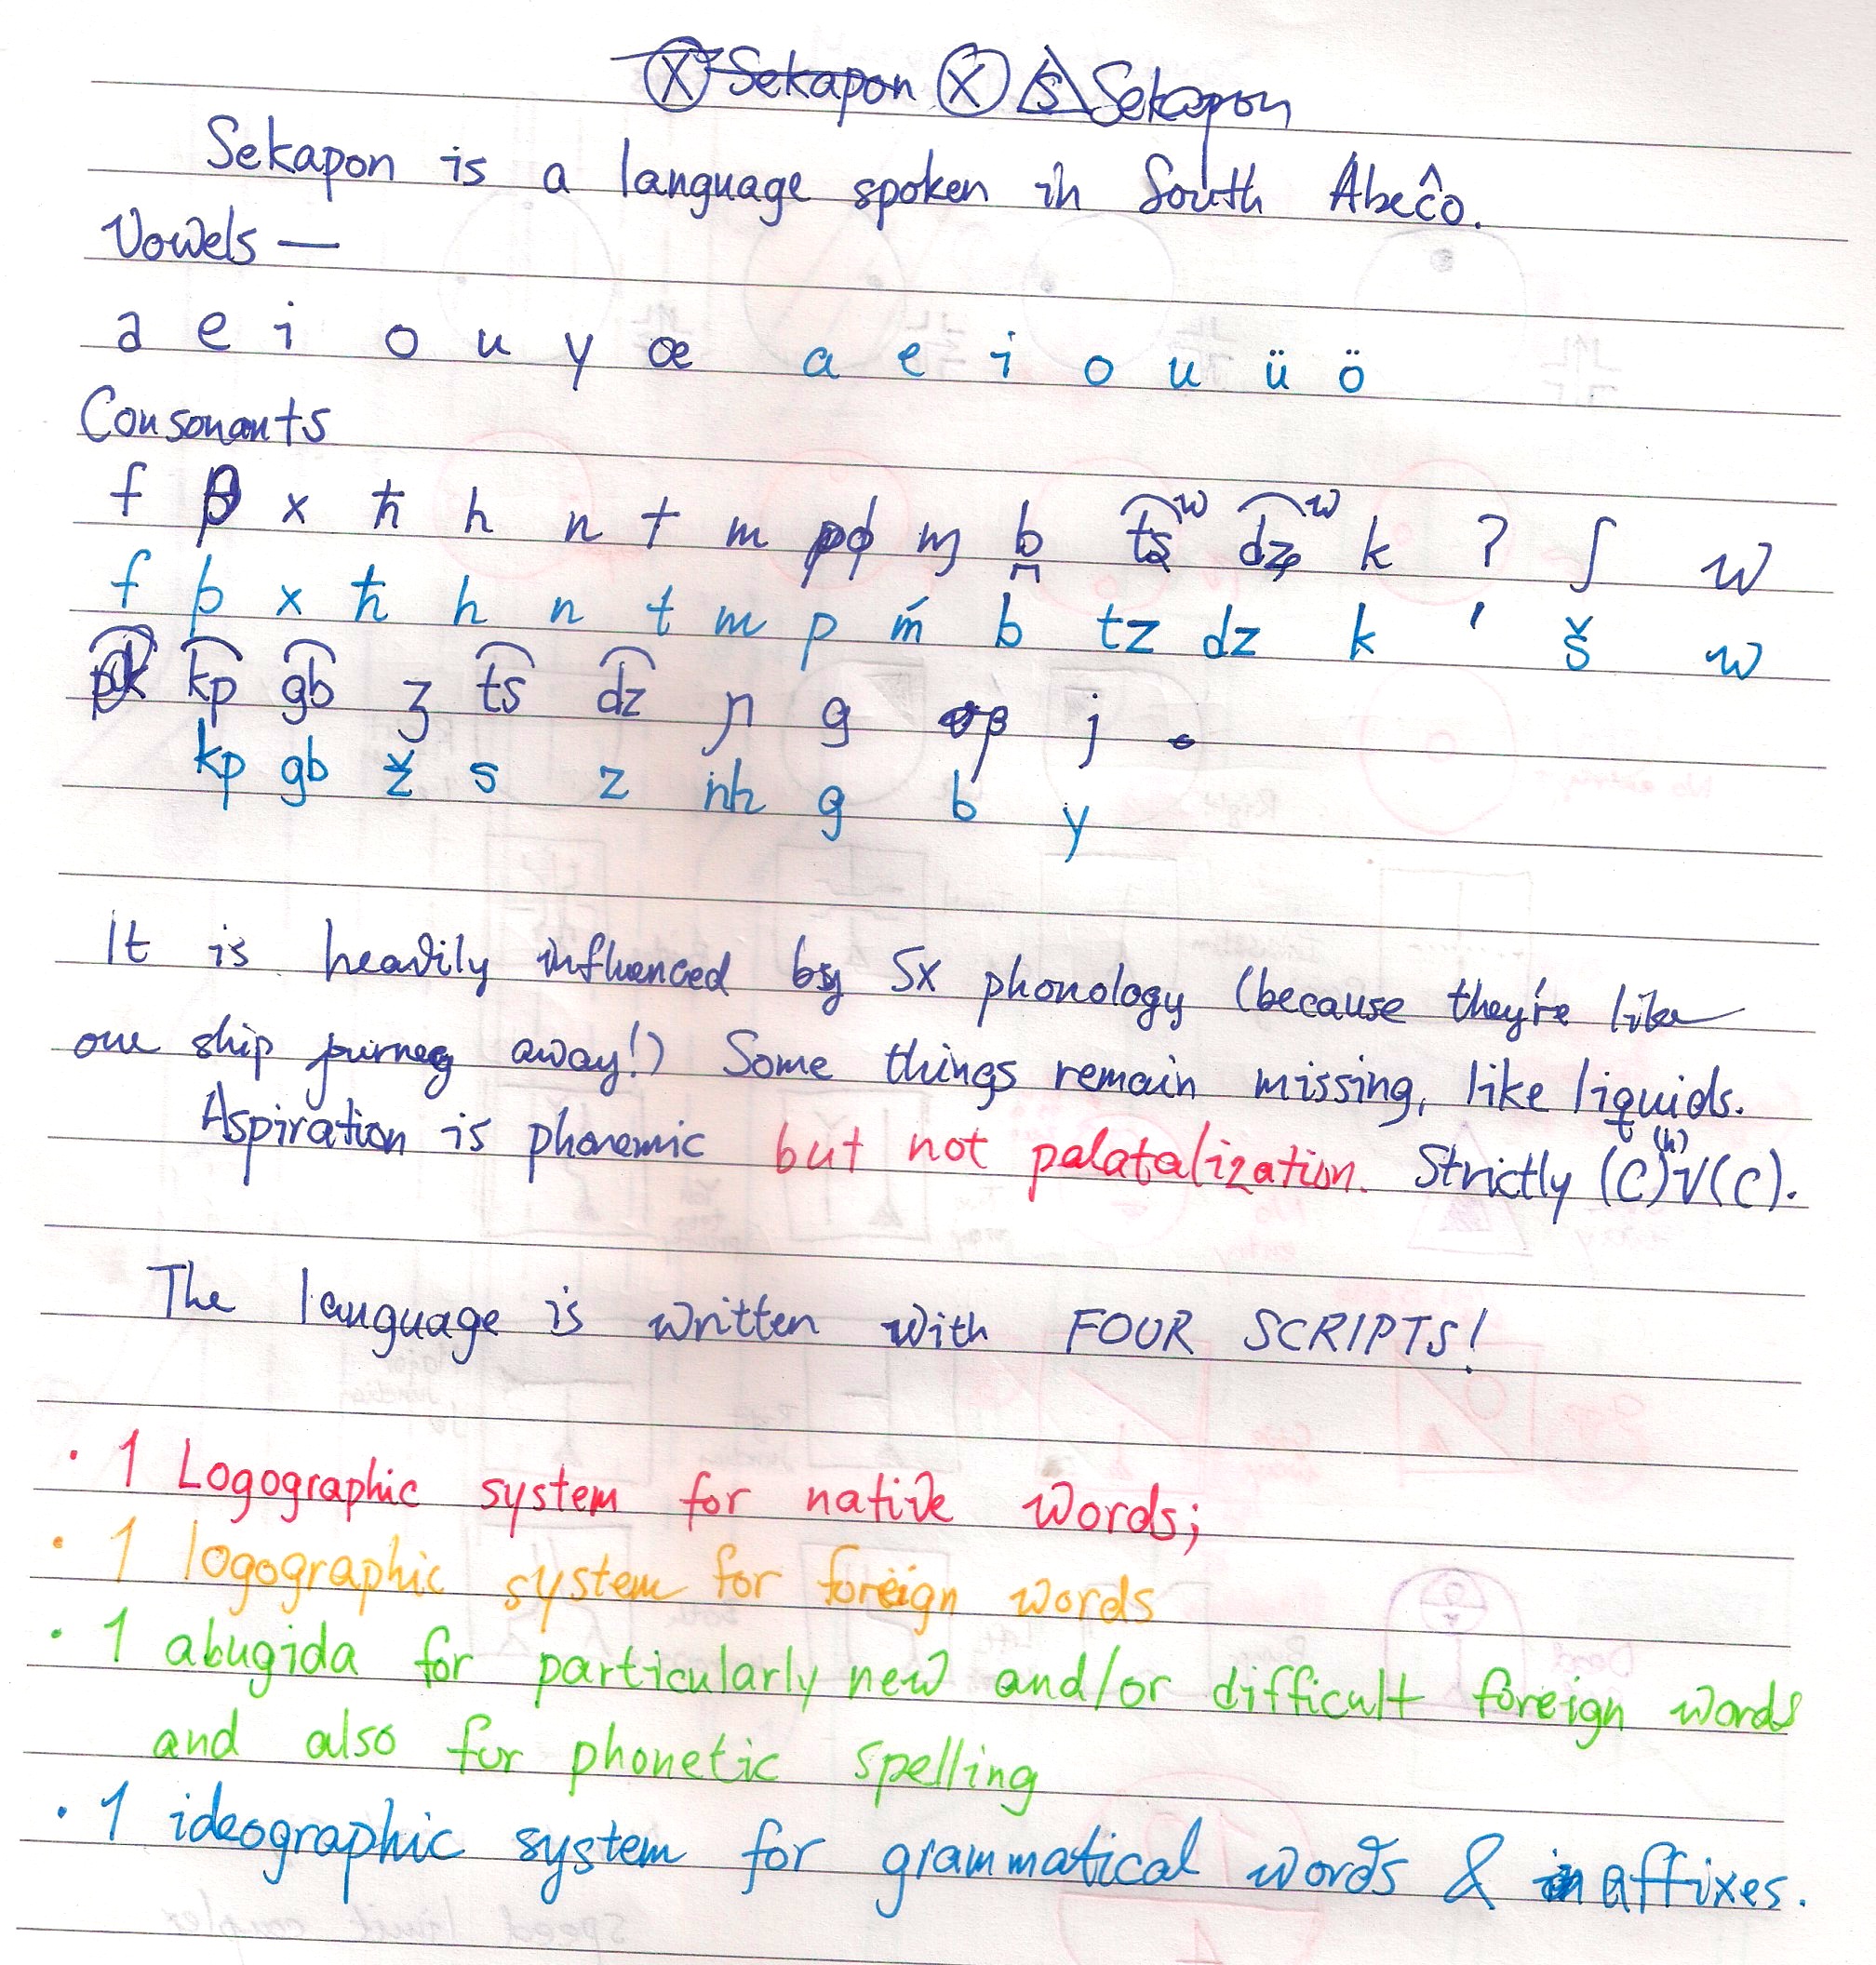 Sekapon Ⓧ Sekapon
Sekapon is a language spoken in South Abeĉo.
Vowels —
a e i o u y œ a e i o u ü ö
Consonants
f x ħ h n t m ɸ ɱ b̪ t͡sʷ d͡zʷ k ʔ ʃ w
f þ x ħ h n t m p ḿ b tz dz k ' š w
k͡p g͡b ʒ t͡s d͡z ɲ g β j
kp gb ž s z nh g b y
It is heavily influenced by SX phonology (because they're like
one ship journey away!) Some things remain missing, like liquids.
Aspiration is phonemic but not palatalization. Strictly (C)⁽ʰ⁾V(C).
The language is written with FOUR SCRIPTS!
· 1 Logographic system for native words;
· 1 logographic system for foreign words
· 1 abugida for particularly new and/or difficult foreign words
and also for phonetic spelling
· 1 ideographic system for grammatical words & affixes.